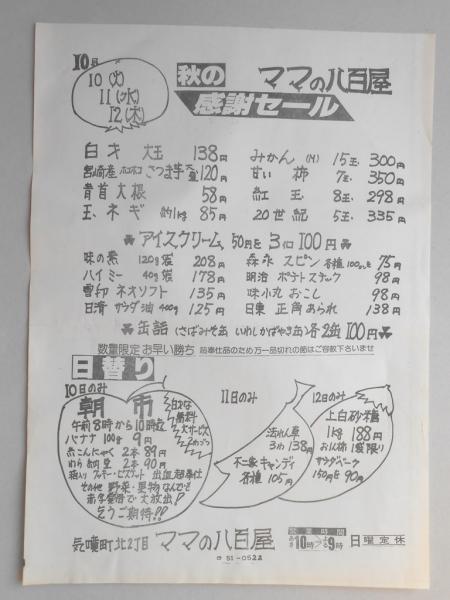 10月
10(火)
11(水)
12(木)
秋の ママの八百屋
感謝セール
白才 大玉 138円 みかん(M) 15玉 300円
宮崎産 ホコホコ さつま芋 120円 甘い 柿 7玉 350円
青首大根 58円 紅玉 8玉 298円
玉ネギ 約1kg 85円 20世紀 5玉 335円
アイスクリーム、50円を3個100円
味の素 120g袋 208円 森永 スピン 各種100g 75円
ハイミー 40g袋 178円 明治 ポテトスナック 98円
雪印 ネオソフト 135円 味小丸 おこし 98円
日清 サラダ油 400g 125円 日東 正角あられ 138円
缶詰 (さばみそ缶 いわしかばやき缶) 各2缶100円
数量限定 お早い勝ち 超奉仕品のため万一品切れの節はご容赦下さいませ
日替り
10日のみ
朝市
午前8時から10時迄
バナナ 100g 9円
糸こんにゃく 2本 89円
わら納豆 2本 90円
箱入りクッキー・ビスケット 出血超奉仕
その他 野菜・果物なんでも
赤字覚悟で大放出!!
どうご期待!!
11日のみ
ほうれん草
3わ 138円
不二家キャンディ
各種 105円
12日のみ
上白砂糖
1kg 188円
お1人様1袋限り
150円を90円
気噴町北2丁目 ママの八百屋 営業時間 あさ10時〜よる9時 日曜定休
51-0522